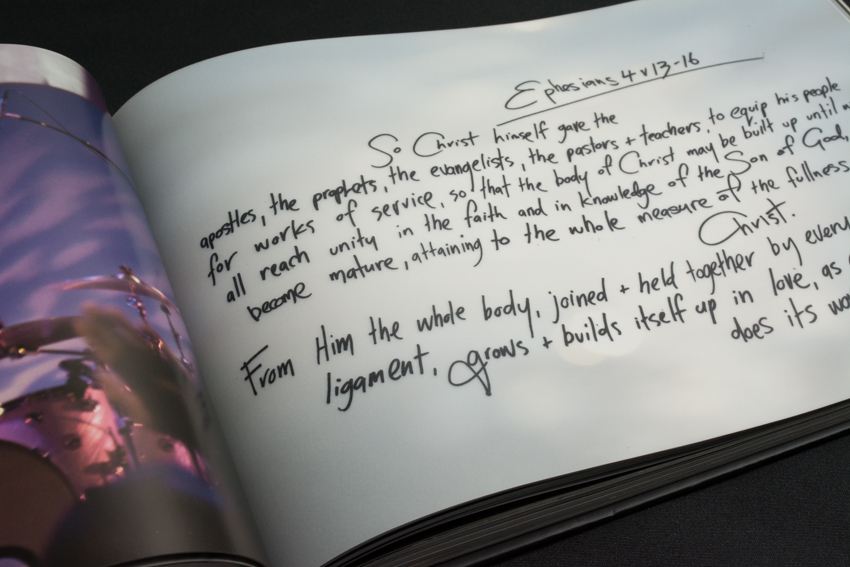 Ephesians 4 v 13-16
So Christ himself gave the
apostles, the prophets, the evangelists, the pastors + teachers, to equip his people
for works of service, so that the body of Christ may be built up until
all reach unity in the faith and in knowledge of the Son of God,
become mature, attaining to the whole measure of the fullness
Christ.
From Him the whole body, joined + held together by every
ligament, grows + builds itself up in love, as
does its